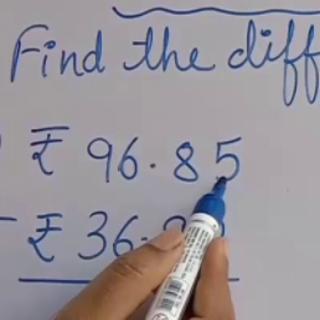 Find the diff
₹ 96.85
- ₹ 36.